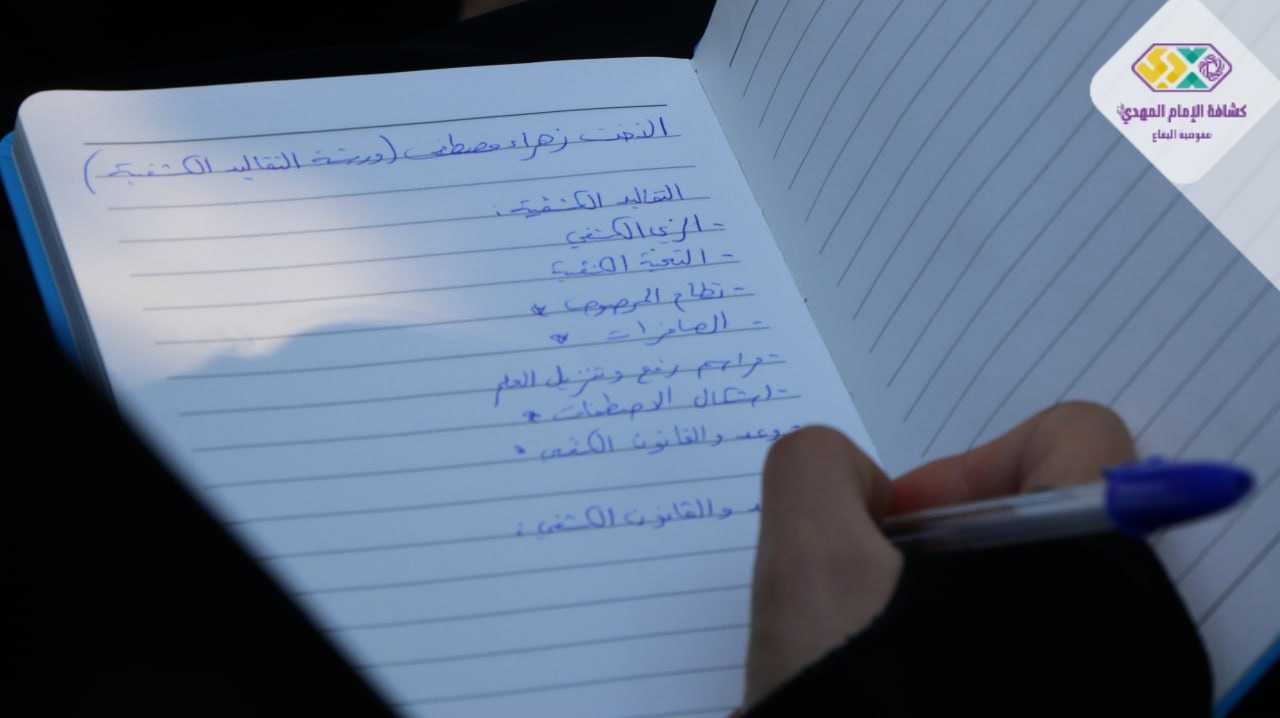 كشافة الإمام المهدي
مفوضية البقاع
الأخت زهراء مصطفى (ورشة التقاليد الكشفية)
التقاليد الكشفية:
- الزي الكشفي
- التحية الكشفية
- نظام المرصوص *
- الصافرات *
- مراسم رفع وتنزيل العلم
- أشكال الاصطفافات *
- وعد والقانون الكشفي *
والقانون الكشفي: